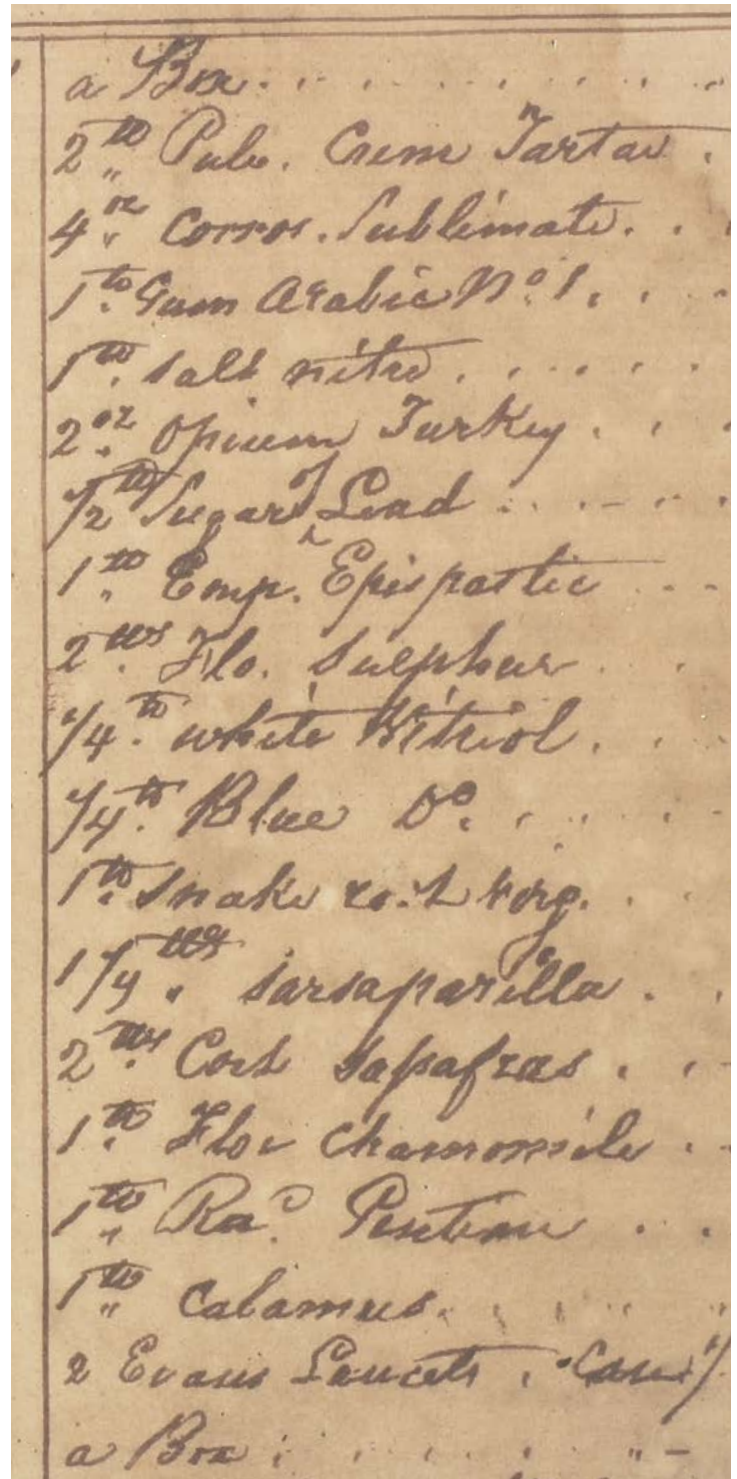 a Box
2 lb Pulv. Crem Tartar
4 oz Corros. Sublimate
1 lb Gum Arabic No 1
1 lb Salt nitre
2 oz Opium Turkey
1/2 lb Sugar of Lead
1 lb Emp. Epispastic
2 lbs Flo. Sulphur
1/4 lb white Vitriol
1/4 lb Blue Do.
1 lb Snake root Virg.
1/4 lbs Sarsaparilla
2 lbs Cort Sassafras
1 lb Flor Chamomile
1 lb Rad. Gentian
1 lb Calamus
2 Evans Lancets
a Box